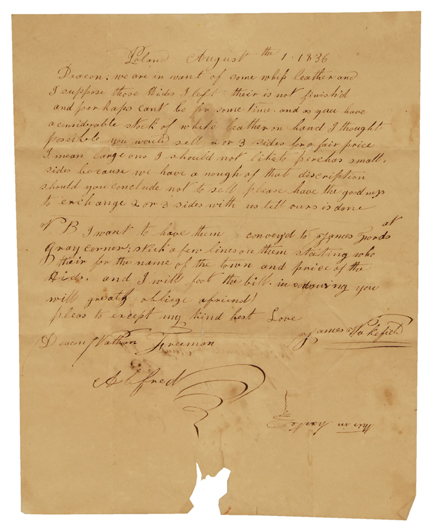 August the 1 1836
Deacon; we are in want of some whip leather and
I suppose those Hides I left their is not finishd
and perhaps cant be for some time and as you have
a considerable stock of white leather on hand I thought
posseble you would sell 2 or 3 sides for a fair price
I mean large ons I should not like to perchas small
sides because we have a nough of that description
should you conclude not to sell please have the goodness
to exchange 2 or 3 sides with us till ours is done
N B I want to have them conveyd to James Fords at
Gray corner; stick a few lines on them stating who
their for the name of the town and price of the
Hides and I will foot the bill. in you
will greatly obliege a friend!
pleas to except my kind best Love
Deacon Nathan Freeman
James
Alfred
in haste